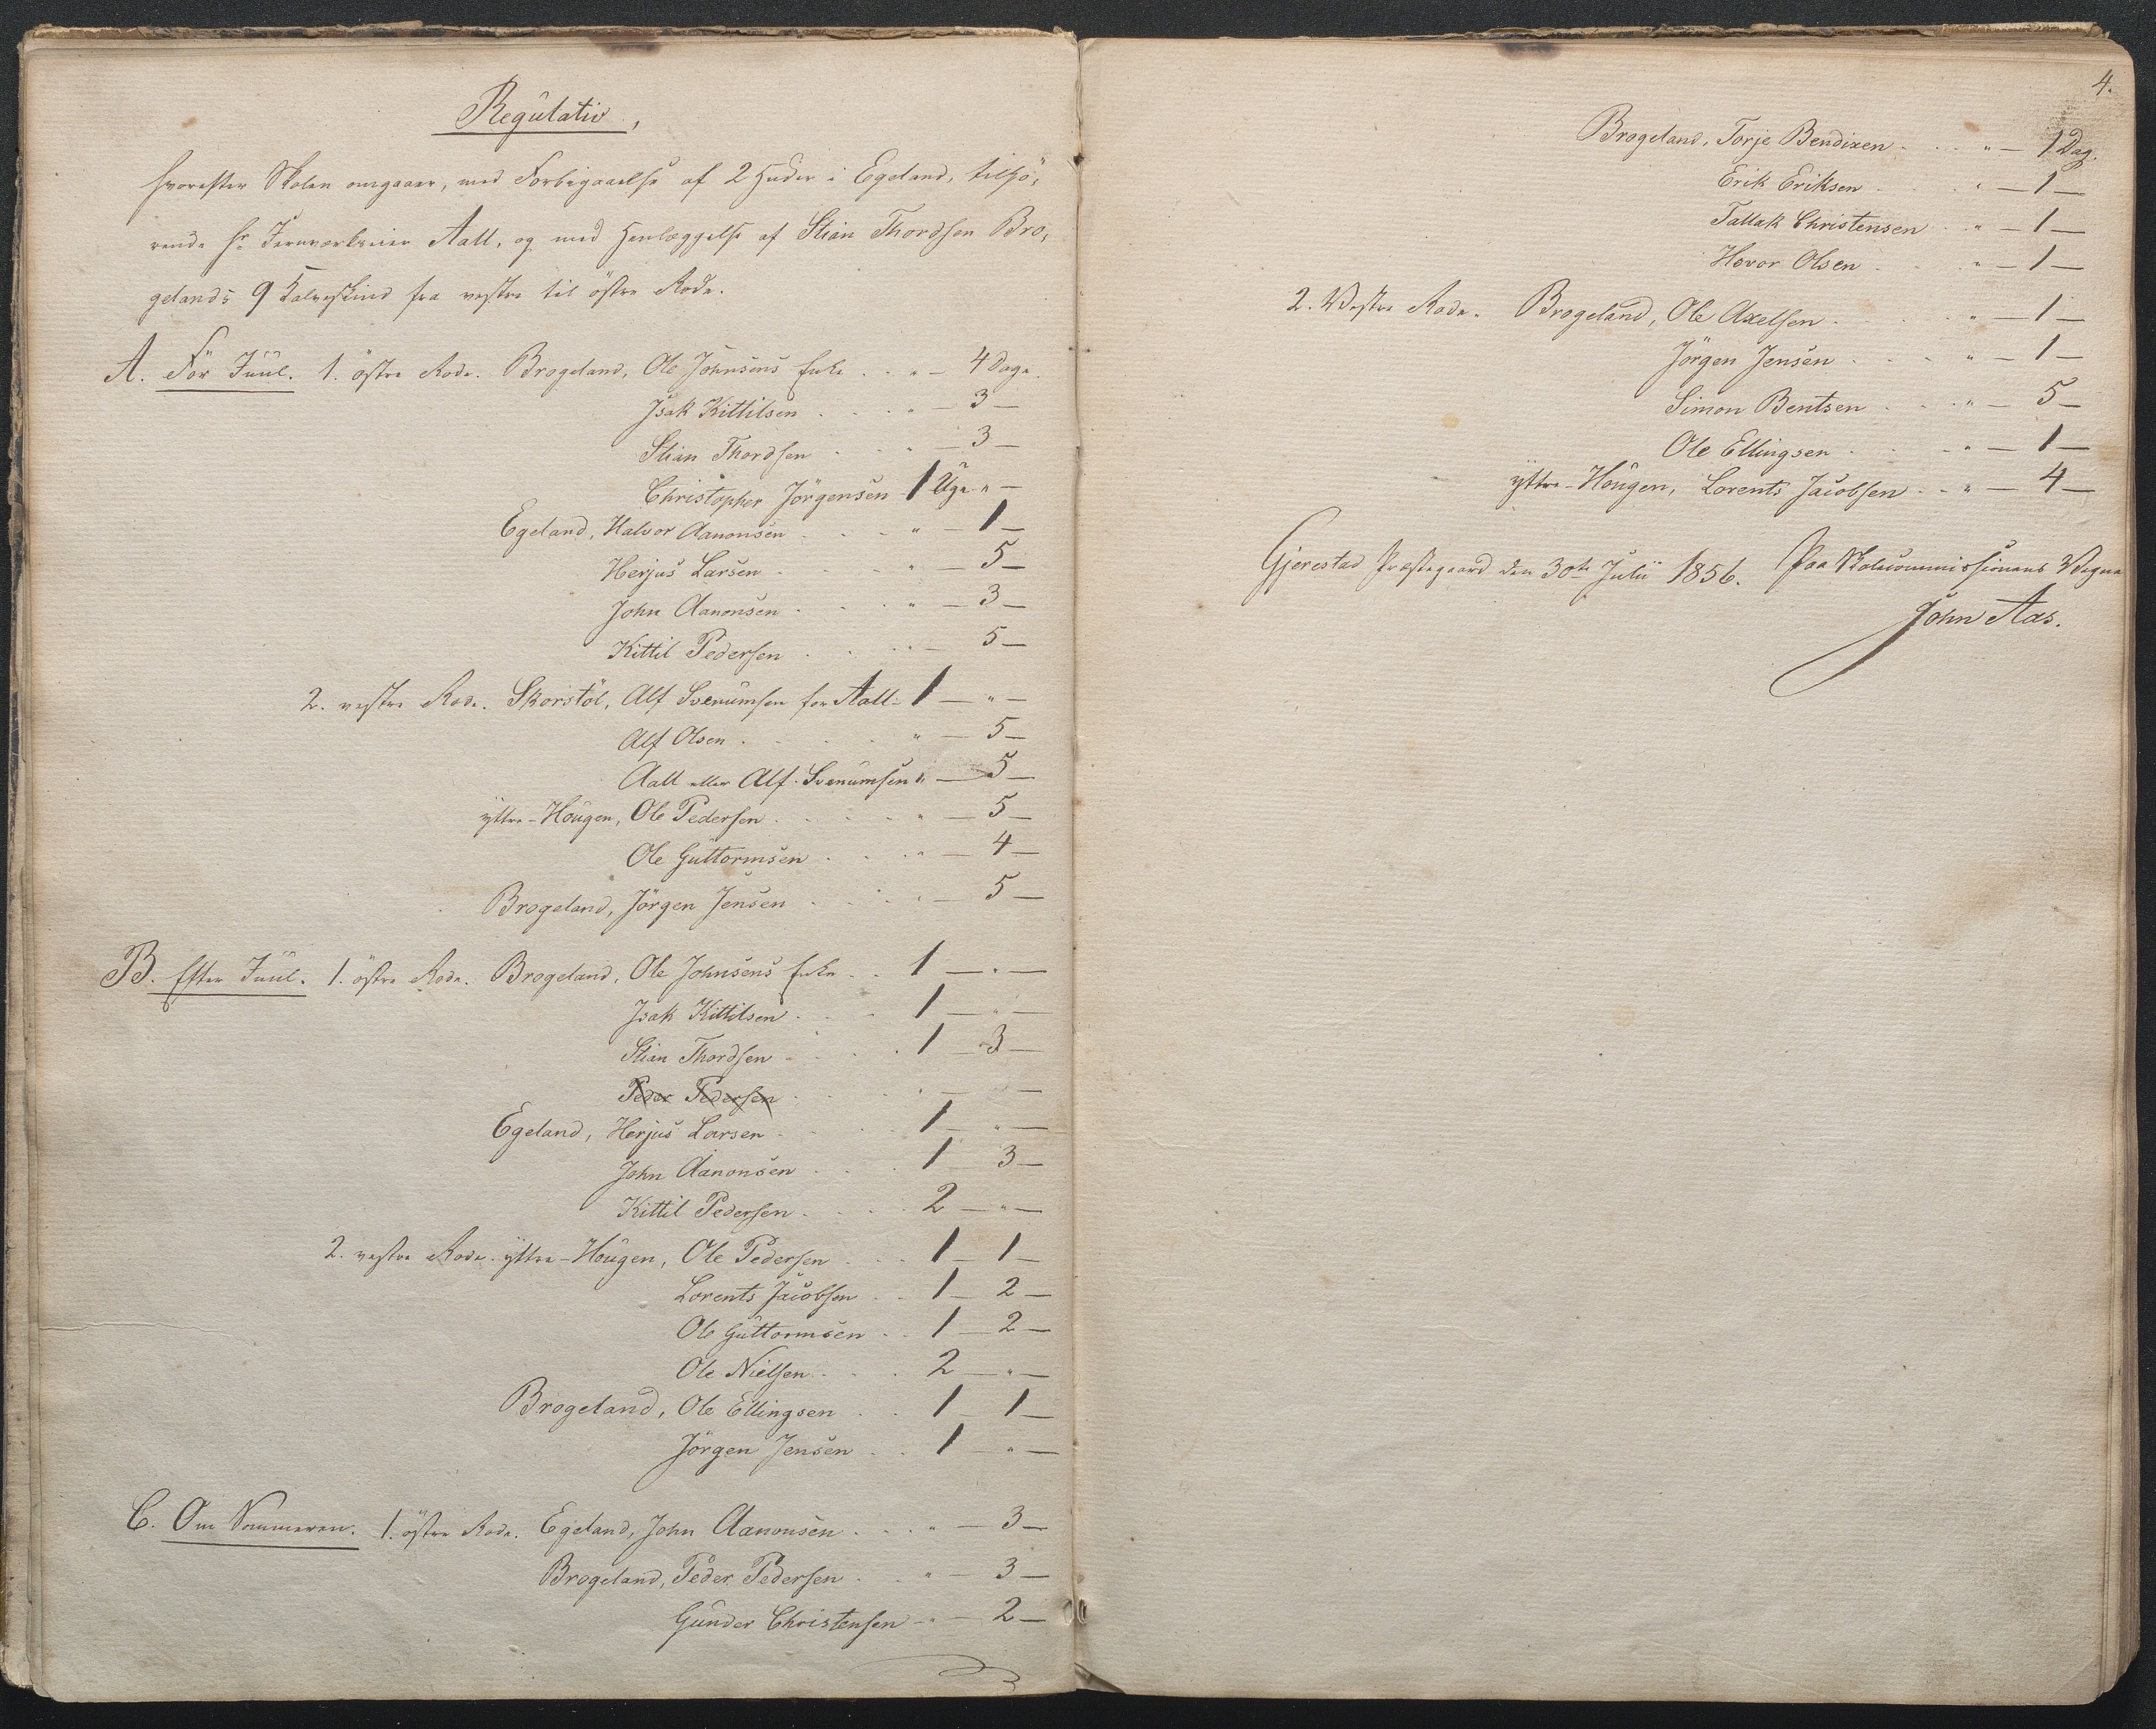 Regulativ,
hvorefter Skolen omgaaer, med Forbigaaelse af 2 Huder i Egeland, tilhö-
rende Hr Jernværkseier Aall, og med Henlæggelse af Stian Thordsen Bro-
gelands 9 Kalveskind fra vestre til östre Rode.
A. För Juul. 1. östre Rode. Brogeland, Ole Johnsens Enke . . " — 4 Dage.
Isak Kittilsen . . . " — 3 —
Stian Thordsen . . " — 3 —
Christopher Jörgensen 1 Uge " —
Egeland, Halvor Aanonsen . . . " — 1 —
Herjus Larsen . . . " — 5 —
John Aanonsen . . . " — 3 —
Kittil Pedersen . . . " — 5 —
2. vestre Rode. Skorstöl, Alf Svenumsen for Aall - 1 — " —
Alf Olsen . . . . " — 5 —
Aall eller Alf Svenumsen " — 5 —
yttre-Hougen, Ole Pedersen . . . . " — 5 —
Ole Guttormsen . . . " — 4 —
Brogeland, Jörgen Jensen . . . " — 5 —
B. Efter Juul. 1. östre Rode. Brogeland, Ole Johnsens Enke . . 1 — " —
Isak Kittilsen . . . 1 — " —
Stian Thordsen . . . 1 — 3 —
Peder Pedersen . . . " — —
Egeland, Herjus Larsen . . . 1 — " —
John Aanonsen . . . 1 — 3 —
Kittil Pedersen . . . 2 — " —
2. vestre Rode. yttre-Hougen, Ole Pedersen . . 1 — 1 —
Lorents Jacobsen . . 1 — 2 —
Ole Guttormsen . . 1 — 2 —
Ole Nielsen . . . 2 — " —
Brogeland, Ole Ellingsen . . 1 — 1 —
Jörgen Jensen . . 1 — " —
C. Om Sommeren. 1. östre Rode. Egeland, John Aanonsen . . . " — 3 —
Brogeland, Peder Pedersen . . " — 3 —
Gunder Christensen . " — 2 —
4.
Brogeland, Torje Bendixen . . . " — 1 Dag.
Erik Eriksen . . . " — 1 —
Tallak Christensen . . " — 1 —
Hovor Olsen . . . " — 1 —
2. Vestre Rode. Brogeland, Ole Axelsen . . . . " — 1 —
Jörgen Jensen . . . " — 1 —
Simon Bentsen . . . " — 5 —
Ole Ellingsen . . . " — 1 —
yttre-Hougen, Lorents Jacobsen . . " — 4 —
Gjerestad Præstegaard den 30te Julii 1856. Paa Skolecommissionens Vegne
John Aas.